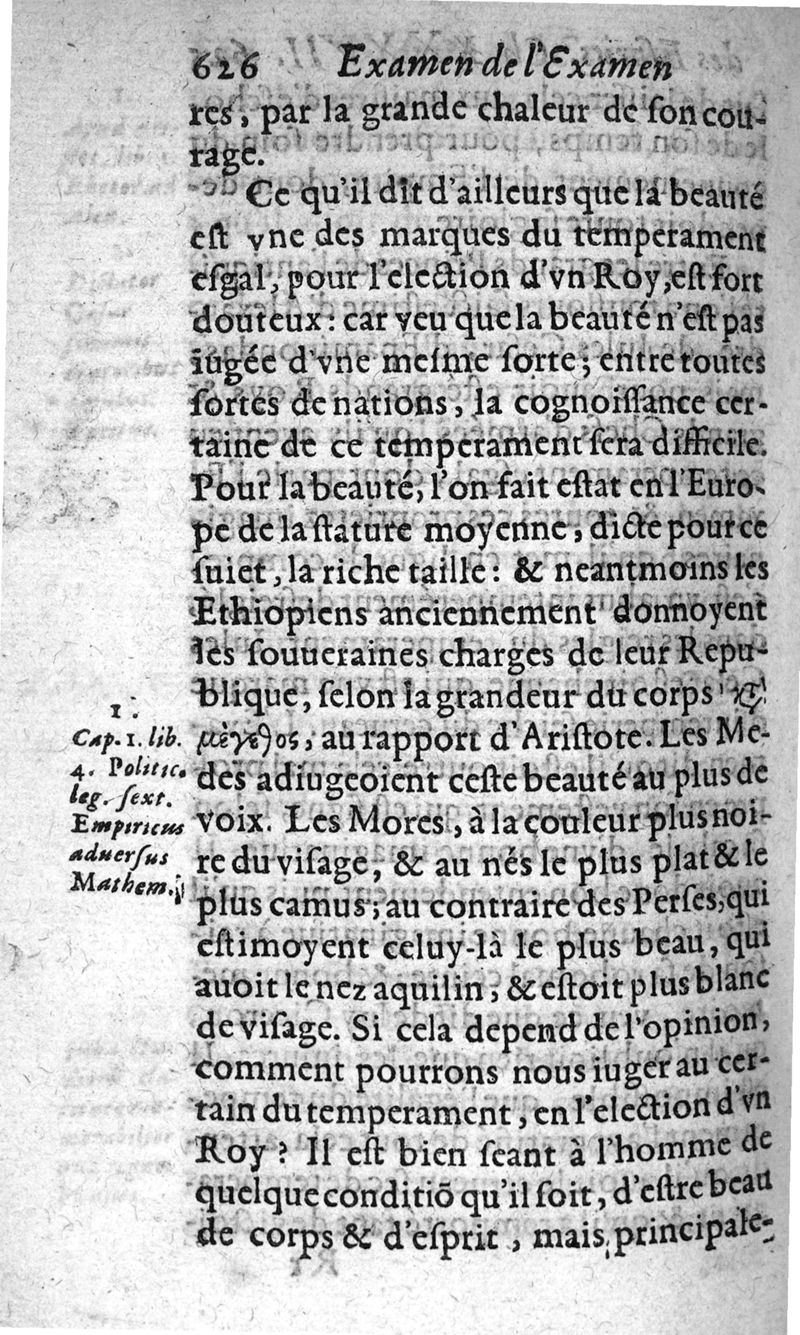 626 Examen de l'Examen
res, par la grande chaleur de ſon cou-
rage.
Ce qu'il dit d'ailleurs que la beauté
eſt vne des marques du temperament
eſgal, pour l'election d'vn Roy, eſt fort
douteux : car veu que la beauté n'eſt pas
iugée d'vne meſme ſorte ; entre toutes
ſortes de nations, la cognoiſſance cer-
taine de ce temperament ſera difficile.
Pour la beauté, l'on fait eſtat en l'Euro-
pe de la ſtature moyenne, dicte pour ce
ſuiet, la riche taille : & neantmoins les
Ethiopiens anciennement donnoyent
les ſouueraines charges de leur Repu-
blique, ſelon la grandeur du corps
μέγεθος, au rapport d'Ariſtote. Les Me-
des adiugeoient ceſte beauté au plus de
voix. Les Mores, à la couleur plus noi-
re du viſage, & au nés le plus plat & le
plus camus ; au contraire des Perſes, qui
eſtimoyent celuy-là le plus beau, qui
auoit le nez aquilin, & eſtoit plus blanc
de viſage. Si cela depend de l'opinion,
comment pourrons nous iuger au cer-
tain du temperament, en l'election d'vn
Roy ? Il eſt bien ſeant à l'homme de
quelque conditiõ qu'il ſoit, d'eſtre beau
de corps & d'eſprit, mais principale-
1.
Cap. 1. lib.
4. Politic.
leg. ſext.
Empiricus
aduerſus
Mathem.